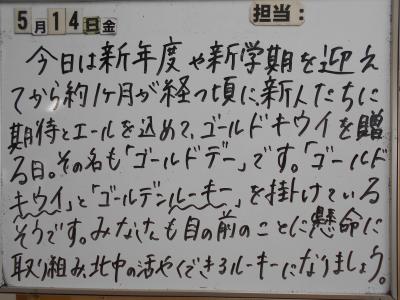 担当:
5月14日金
今日は新年度や新学期を迎え
てから約1ヶ月が経つ頃に新人たちに
期待とエールを込めて、ゴールドキウイを贈
る日。その名も「ゴールドデー」です。「ゴールド
キウイ」と「ゴールデンルーキー」を掛けている
そうです。みなさんも目の前のことに懸命に
取り組み、北中の活やくできるルーキーになりましょう。